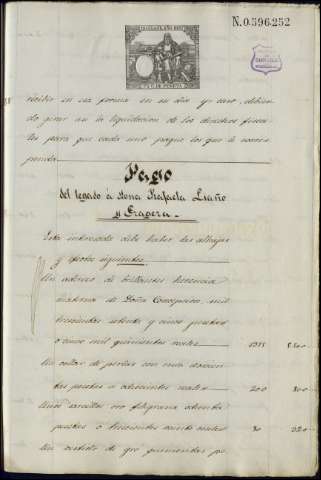 N.0.596.252
recibir en esa forma en su dia y caso, debien
do girar en la liquidacion de los derechos fisca
les para que cada uno pague los que le corres
ponda.
Pago
del legado á Dona Rafaela Liaño
y Gragera.
Esta interesada debe haber las alhajas
y efectos siguientes.
Un aderezo de brillantes herencia
materna de Doña Concepcion, mil
trescientas setenta y cinco pesetas
o cinco mil quinientos reales 1375 5500
Un collar de perlas con una doscien
tas pesetas u ochocientos reales 200 800
Unos zarcillos oro filigrana ochenta
pesetas o trescientos veinte reales 80 320
Un vestido de gro